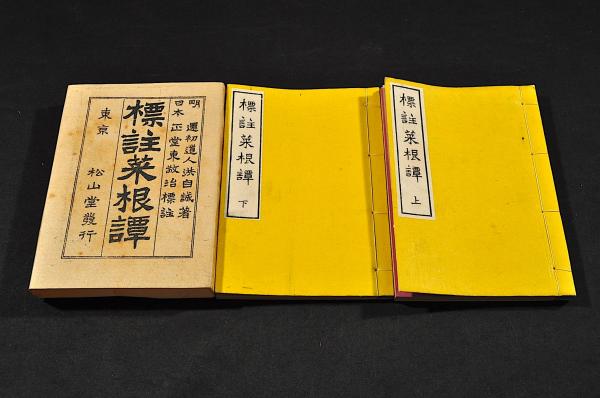 明 還初道人洪自誠著
日本 正堂東敬治標註
標註菜根譚
東京 松山堂發行
標註菜根譚
下
標註菜根譚
上